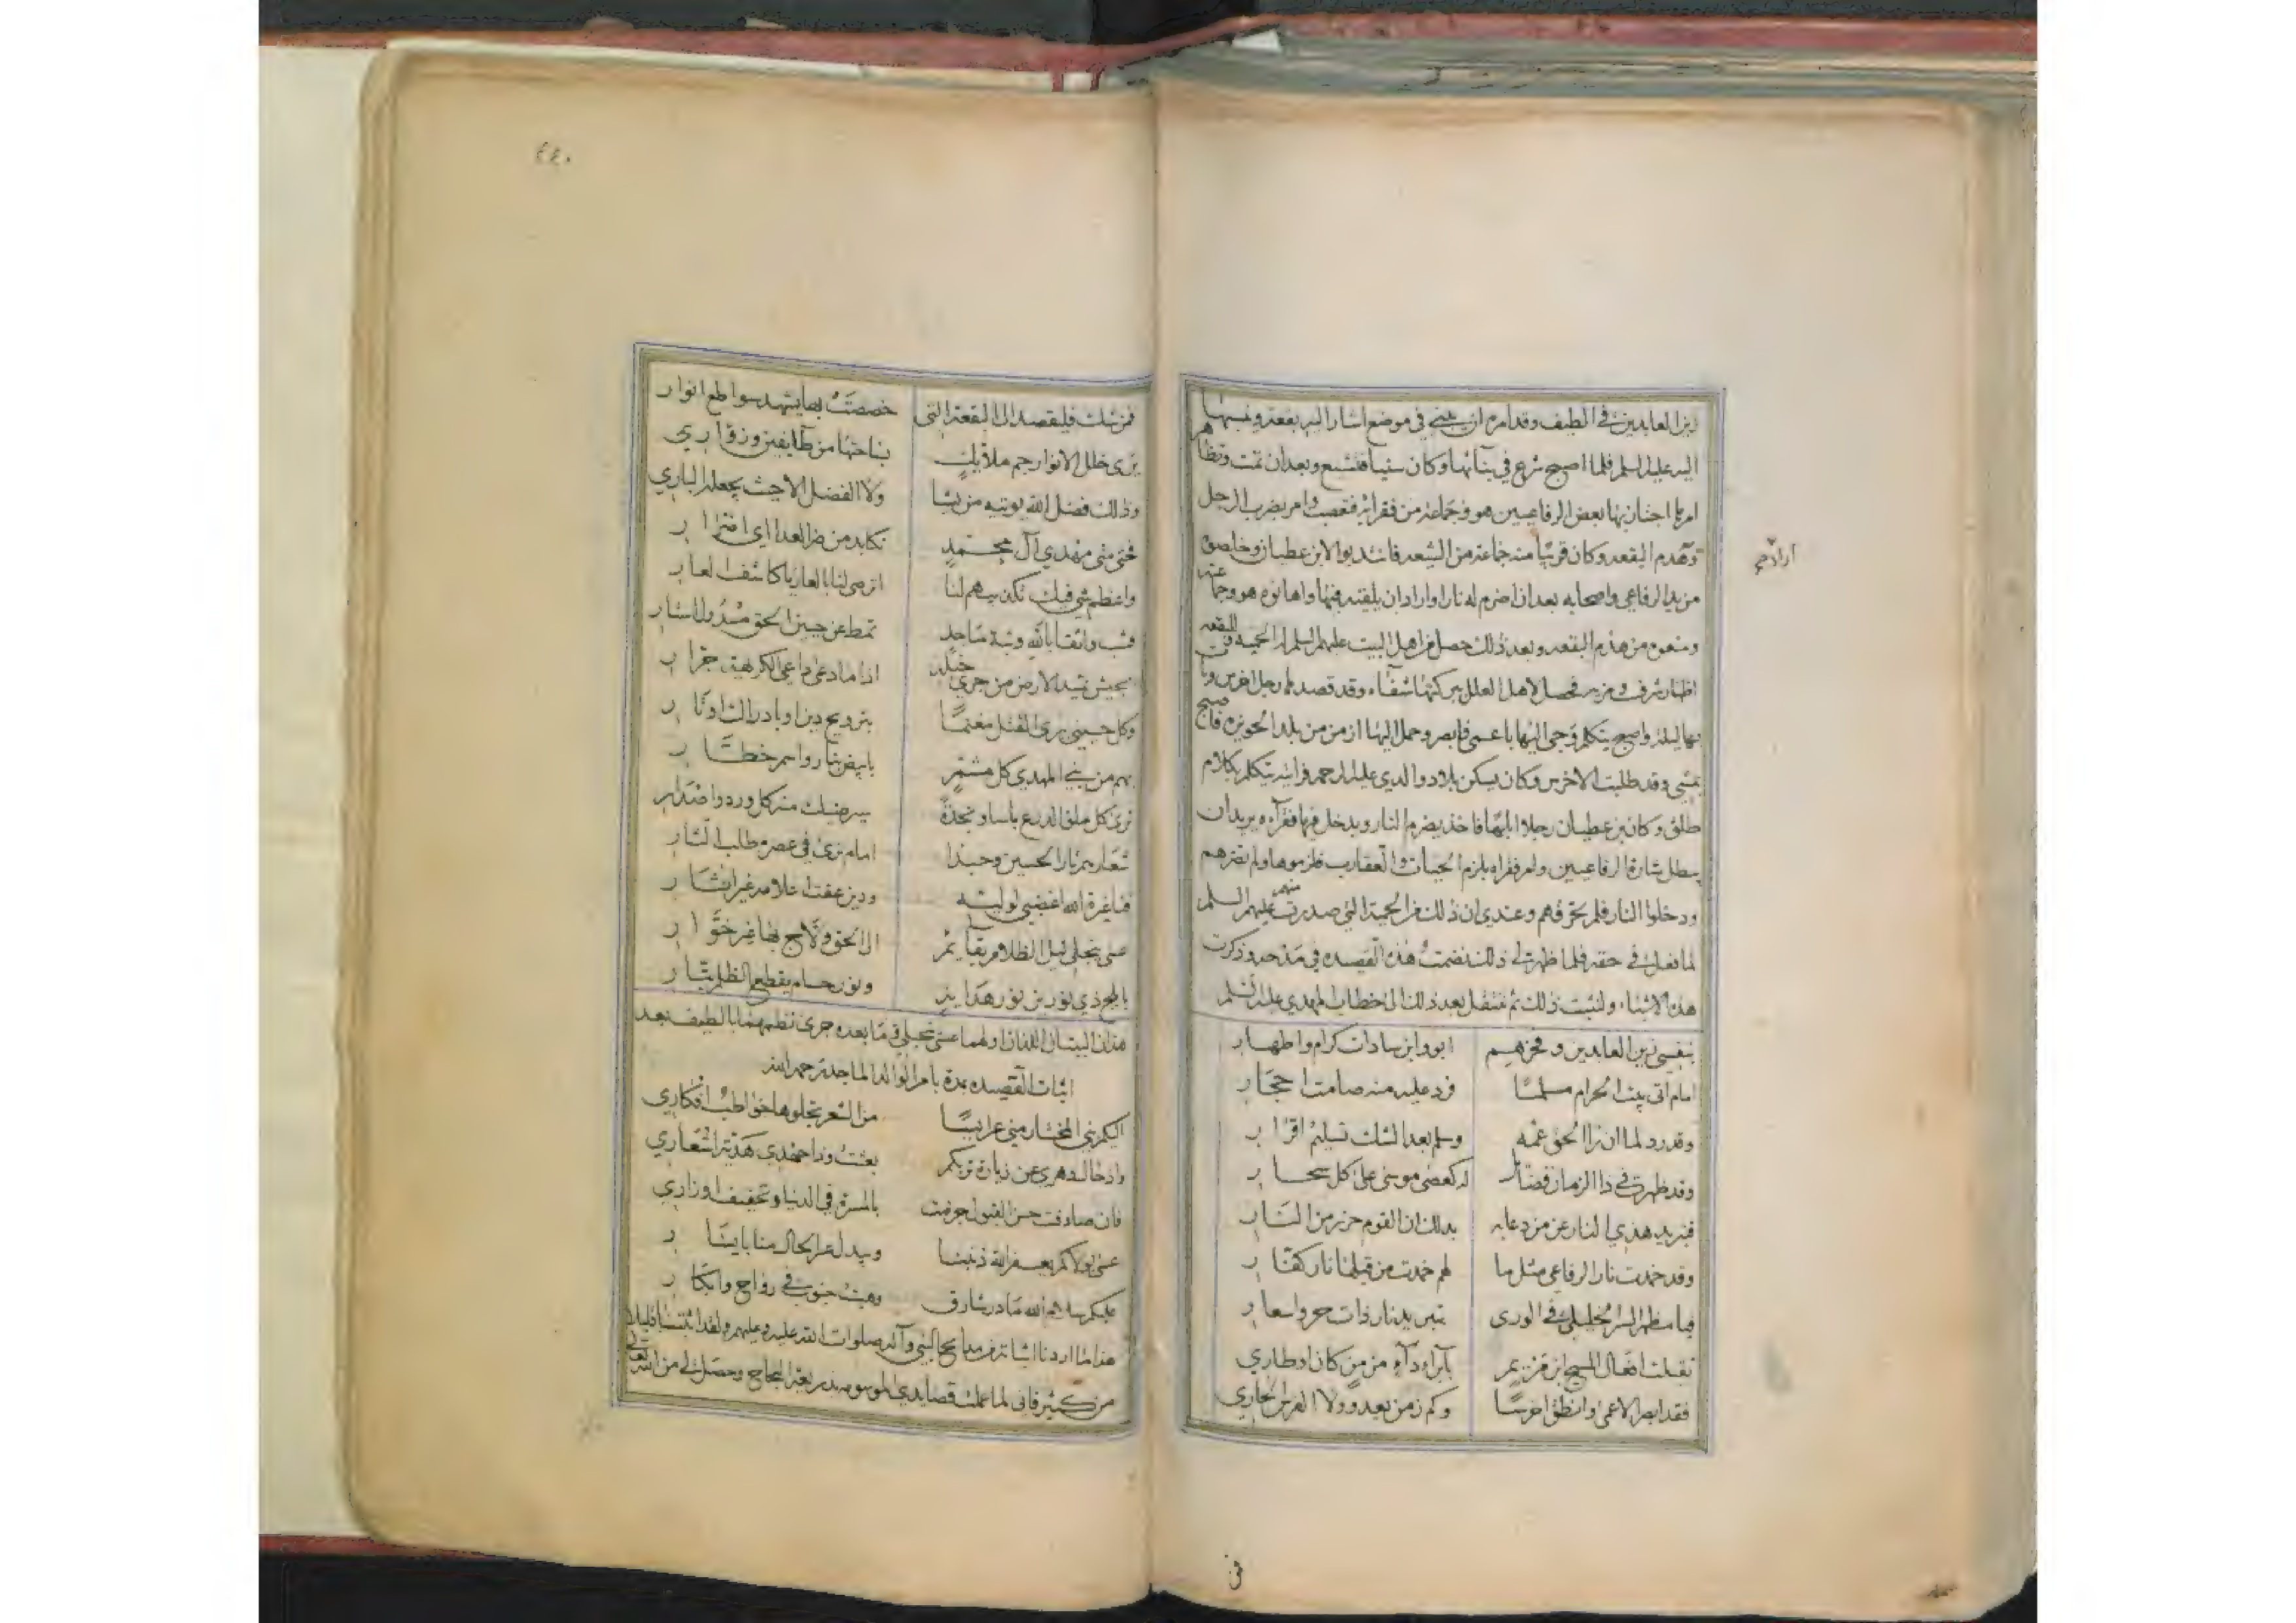 زين العابدين في الطيف وقد امره ان يبني في موضع اشار اليه بقعة وينسبها
اليه عليه السلم فلما اصبح شرع في بنائها وكان سنيا فتشيع وبعد ان تمت وتظاهر
امرها اجتاز بها بعض الرفاعيين هو وجماعة من فقرائه فغضب وامر بضرب الرجل
وهدم البقعه وكان قريبا منه جماعة من الشيعه فانتدبوا لابن عطيان وخلصوه
من يد الرفاعي واصحابه بعد ان اضرم له نارا واراد ان يلقيه فيها واهانوه هو وجماعته
ومنعوه من هدم البقعه وبعد ذلك حصل من اهل البيت عليهم السلم الحميه للبقعه
اظهار شرف ومزيه فحصل لاهل العلل ببركتها شفاء وقد قصدها رجل اخرس وبات
بها ليلة واصبح يتكلم وجئ اليها باعمى فابصر وحمل اليها ازمن من بلد الحويزه فاصبح
يمشي وقد طلبت الاخرس وكان يسكن بلاد والدي عليه الرحمه فرايته يتكلم بكلام
طلق وكان بن عطيان رجلا ابلها فاخذ يضرم النار ويدخل فيها فقرآءه يريد ان
يبطل شارة الرفاعيين وامر فقراه بلزم الحيات والعقارب فلزموها ولم تضرهم
ودخلوا النار فلم تحرقهم وعندي ان ذلك من الحمية التي صدرت منهم عليهم السلم
لما فعل في حقه فلما ظهر لي ذلك نضمت هذه القصيده في مدحه وذكرت
هذه الاشياء ولنثبت ذلك ثم ننتقل بعد ذلك الى خطاب المهدي عليه السلم
بنفسي زين العابدين وفخرهم ابو وابن سادات كرام واطهار
امام اتى بيت الحرام مسلما فرد عليه منه صامت احجار
وقدرد لما ان راا الحق عمه وسلم بعد الشك تسليم اقرار
وقد ظهرت في ذا الزمان فضائل له كعصى موسى على كل سحار
فتبريد هذي النار عن من دعا به يدلك ان القوم حرز من النار
وقد خمدت نار الرفاعي مثل ما لهم خمدت من قبلنا نار كفار
فيا مظهر السر الخليلي في الورى بتبريد نار ذات حر واسعار
تقبلت افعال المسيح ابن مريم بآبراء دآء مزمن كان او طاري
فقد ابصر الاعمى وانطق اخرسا وكم زمن يعدو ولا الفرس الجاري
فى
٤٤٠
فمن شك فليقصد الى البقعة التي خصصت بها يشهد سواطع انوار
يرى خلل الانوار جم ملائك بناحتها من طايفين وزوّاري
وذلك فضل الله يوتيه من يشا ولا الفضل الا حيث يجعله الباري
فحتى متى مهدي آل محمد نكابد من ضر العدا اي اضرار
فثب واثقا بالله وثبة ماجد تمط عن جبين الحق مسدول استار
بجيش تميد الارض من جري خيله اذا ما دعى داعي الكريهة جرار
وكل حسيني يرى القتل مغنما بترويج دين او بادراك اوتار
بهم من بني المهدي كل مشمر بابيض بتار واسمر خطار
ترى كل ملقى الدرع باسا ونجدة يرضيك منه كل ورد واصدار
شعارهم ثار الحسين وحبذا امام نرى في عصره طلب الثار
فيا غيرة الله اغضبي لوليه ودين عفت اعلامه غير اثار
عسى ينجلي ليل الظلام بقايم الى الحق ولاج بها غير خوار
بابلج ذي نور بن نور هداية ونور حسام يقطع الظلم بتار
هذان البيتان اللذان اولهما عسى ينجلي وما بعده جرى نظمهما بالطيف بعد
اثبات القصيده بمدة بامر الوالد الماجد رحمه الله
اليكم بني المختار مني عرايسا من الشعر تجلوها خواطب افكاري
واذ حال دهري عن زيارة تربكم بعثت وذا جهدي هدية اشعاري
فان صادفت حسن القبول جوزيت بالمسرة في الدنيا وتخفيف اوزاري
عسى بولاكم يغفر الله ذنبنا ويبدل اعسار الحال منا بايسار
عليكم سلام الله ما ذر شارق وهبت جنوب في رواح وابكار
هذا ما اردنا اثباته في مدايح النبي وآله صلوات الله عليه وعليهم ولقد اثبت قليلا
من كثير فاني لما عملت قصايدي الموسومه بذريعة النجاح وحصل لي من الله تعالى